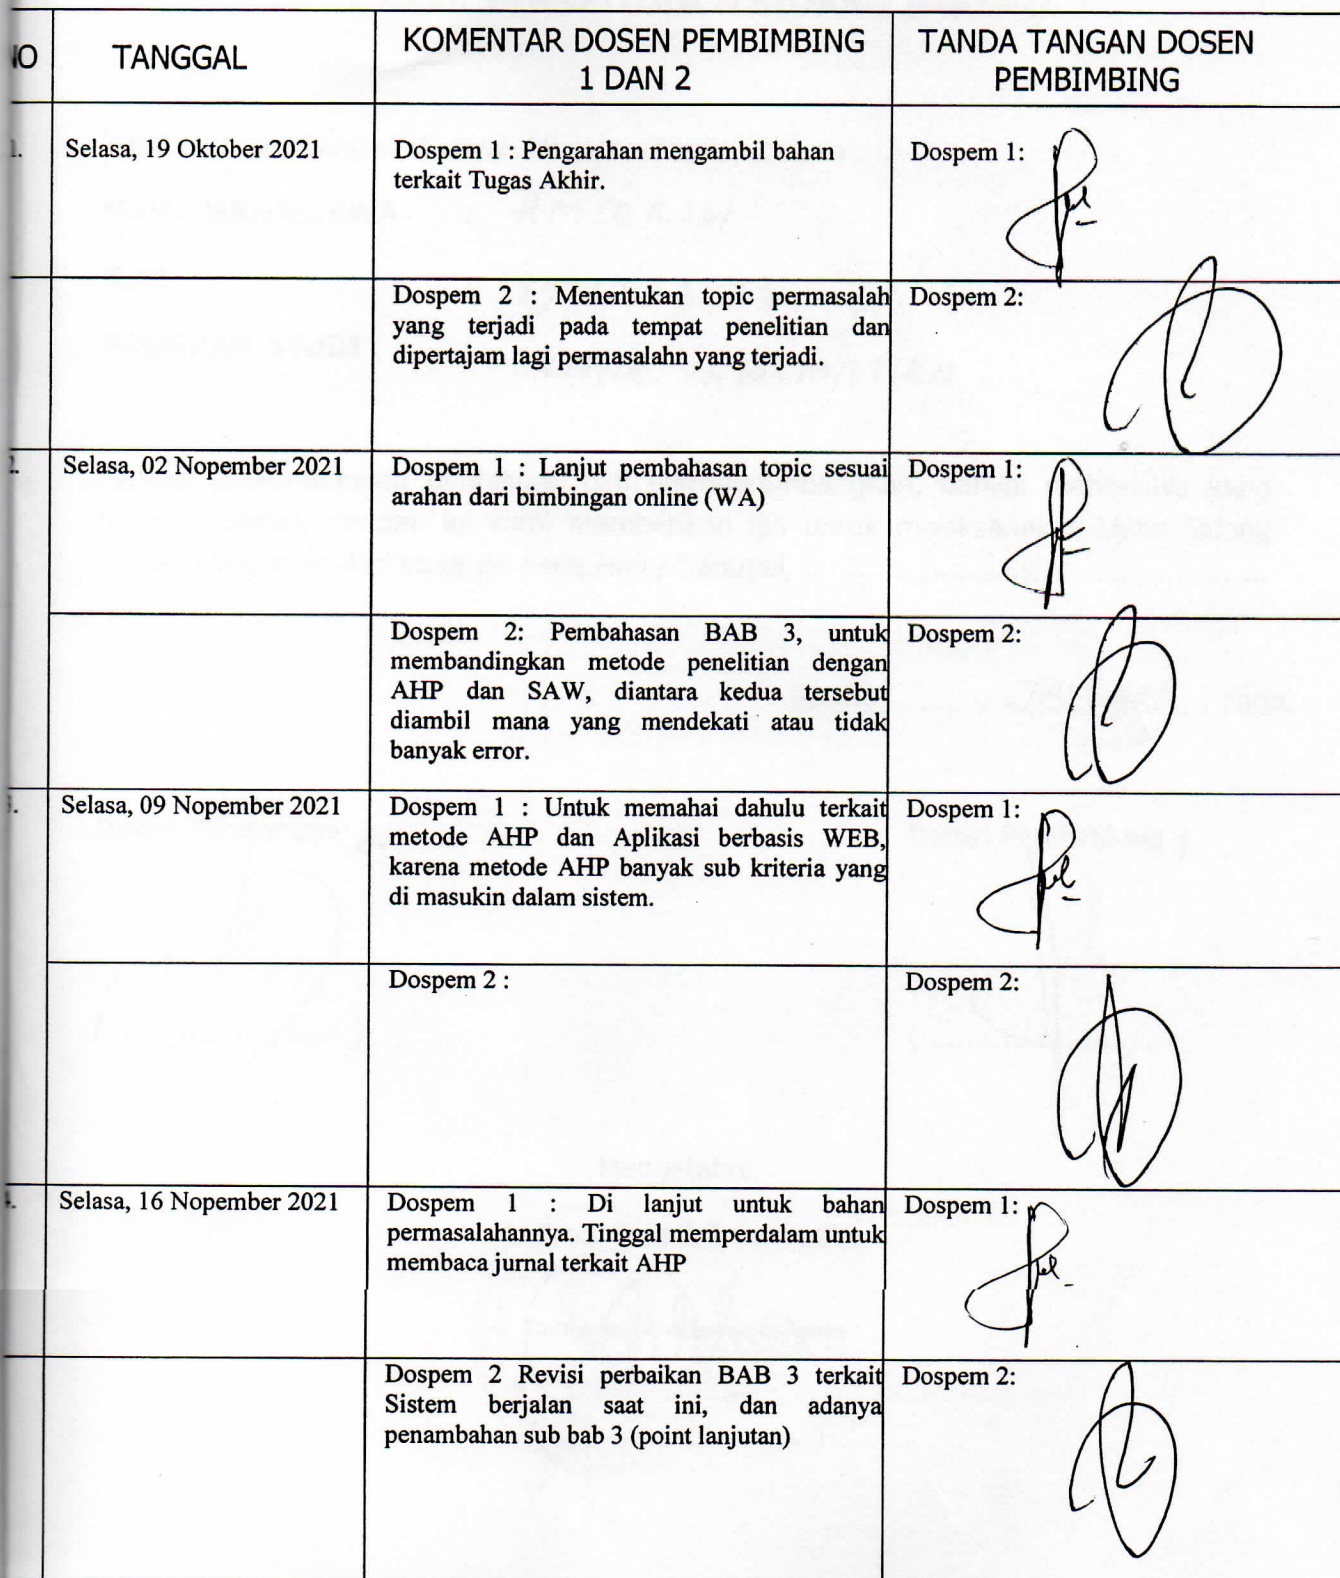 NO TANGGAL KOMENTAR DOSEN PEMBIMBING TANDA TANGAN DOSEN
1 DAN 2 PEMBIMBING
1. Selasa, 19 Oktober 2021 Dospem 1 : Pengarahan mengambil bahan Dospem 1:
terkait Tugas Akhir.
Dospem 2 : Menentukan topic permasalah Dospem 2:
yang terjadi pada tempat penelitian dan
dipertajam lagi permasalahn yang terjadi.
2. Selasa, 02 Nopember 2021 Dospem 1 : Lanjut pembahasan topic sesuai Dospem 1:
arahan dari bimbingan online (WA)
Dospem 2: Pembahasan BAB 3, untuk Dospem 2:
membandingkan metode penelitian dengan
AHP dan SAW, diantara kedua tersebut
diambil mana yang mendekati atau tidak
banyak error.
3. Selasa, 09 Nopember 2021 Dospem 1 : Untuk memahai dahulu terkait Dospem 1:
metode AHP dan Aplikasi berbasis WEB,
karena metode AHP banyak sub kriteria yang
di masukin dalam sistem.
Dospem 2 : Dospem 2:
4. Selasa, 16 Nopember 2021 Dospem 1 : Di lanjut untuk bahan Dospem 1:
permasalahannya. Tinggal memperdalam untuk
membaca jurnal terkait AHP
Dospem 2 Revisi perbaikan BAB 3 terkait Dospem 2:
Sistem berjalan saat ini, dan adanya
penambahan sub bab 3 (point lanjutan)